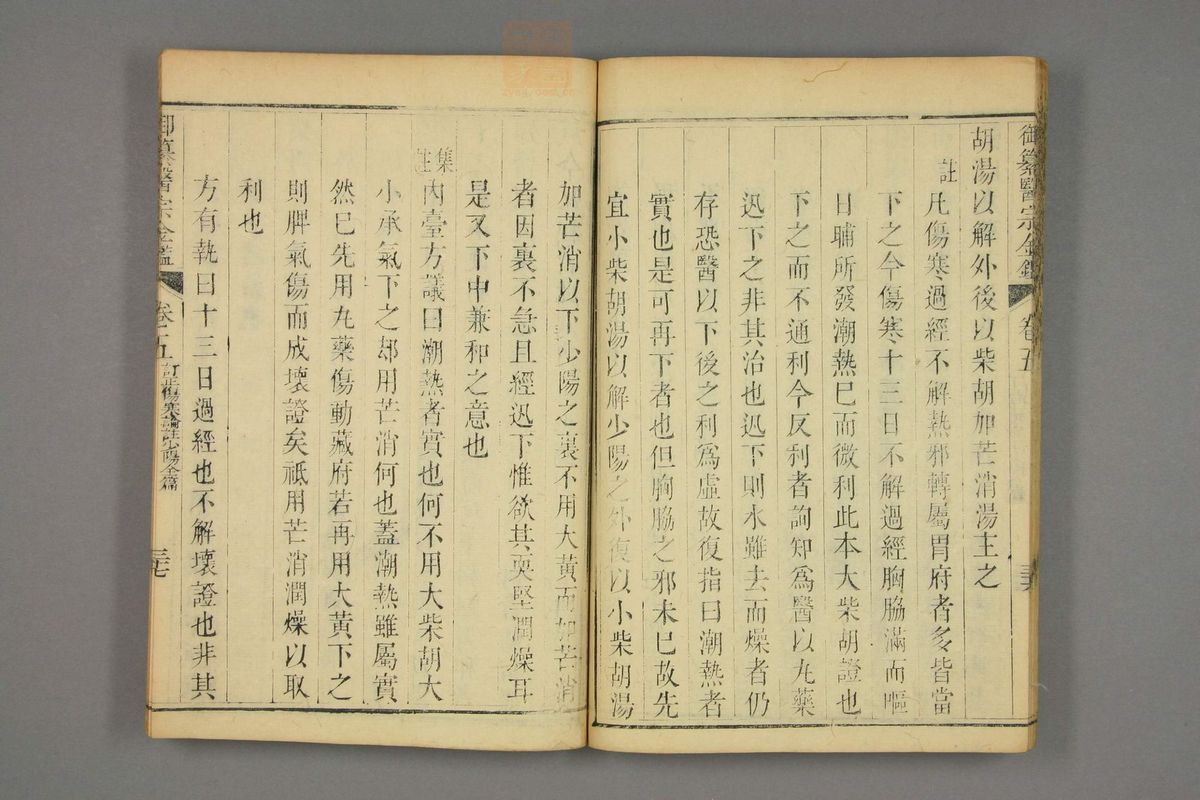 御纂醫宗金鑑 卷五 三六
胡湯以解外後以柴胡加芒消湯主之
註
凡傷寒過經不解熱邪轉屬胃府者多皆當
下之今傷寒十三日不解過經胸脇滿而嘔
日晡所發潮熱巳而微利此本大柴胡證也
下之而不通利今反利者詢知爲醫以丸藥
迅下之非其治也迅下則水雖去而燥者仍
存恐醫以下後之利爲虛故復指曰潮熱者
實也是可再下者也但胸脇之邪未巳故先
宜小柴胡湯以解少陽之外復以小柴胡湯
加芒消以下少陽之裏不用大黃而加芒消
者因裏不急且經迅下惟欲其耎堅潤燥耳
是又下中兼和之意也
集註
內臺方議曰潮熱者實也何不用大柴胡大
小承氣下之却用芒消何也蓋潮熱雖屬實
然巳先用丸藥傷動藏府若再用大黃下之
則脾氣傷而成壞證矣祇用芒消潤燥以取
利也
方有執曰十三日過經也不解壞證也非其
御纂醫宗金鑑 卷五 訂正傷寒論註少陽全篇 三七